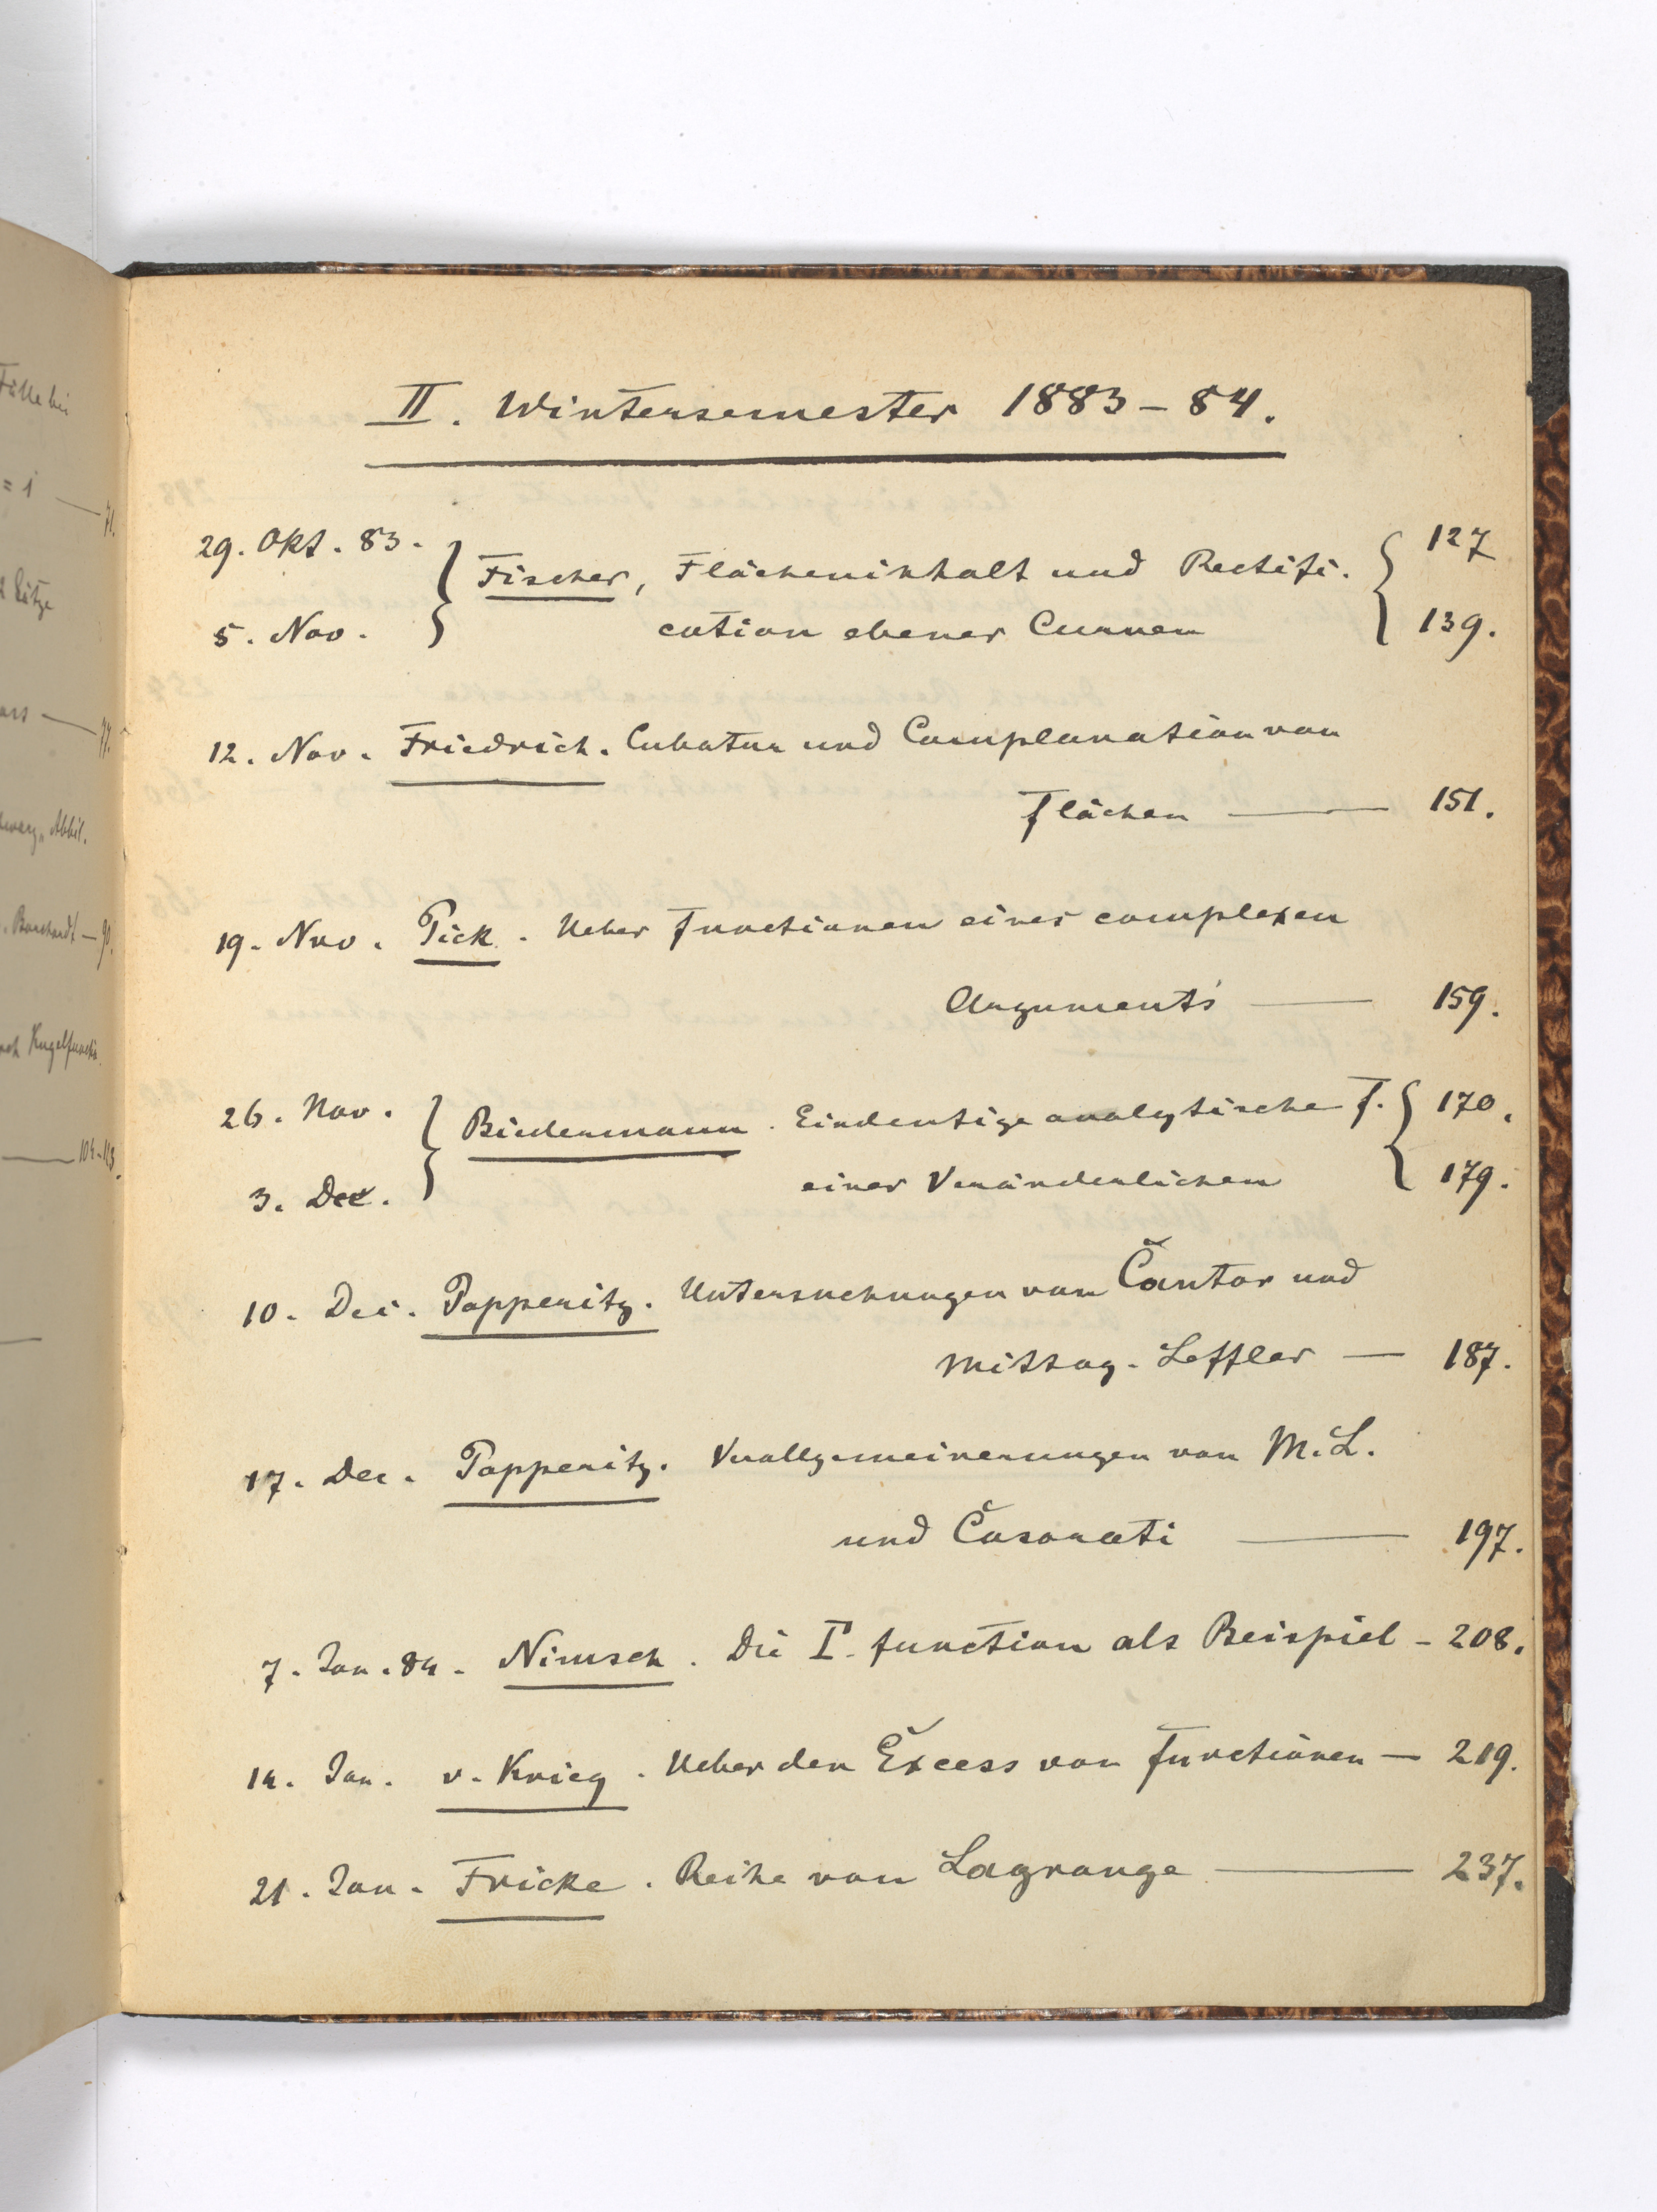 II. Wintersemester 1883-84.
29. Okt. 83.
5. Nov.
Fischer, Flächeninhalt und Rectifi-
cation ebener Curven
127
139.
12. Nov. Friedrich. Cubatur und Complanation von
Flächen — 151.
19. Nov. Pick. Ueber Functionen eines complexen
Arguments — 159.
26. Nov.
3. Dec.
Biedermann. Eindeutige analytische F.
einer Veränderlichen
170.
179.
10. Dec. Papperitz. Untersuchungen von Cantor und
Mittag-Leffler — 187.
17. Dec. Papperitz. Verallgemeinerungen von M. L.
und Casorati — 197.
7. Jan. 84. Nimsch. Die Γ-function als Beispiel - 208.
14. Jan. v. Krieg. Ueber den Excess von Functionen — 219.
21. Jan. Fricke. Reihe von Lagrange — 237.
= 1 — 71.
Sätze
— 77.
Abbil.
Borchardt — 90.
Kugelfunctio
— 104-113.